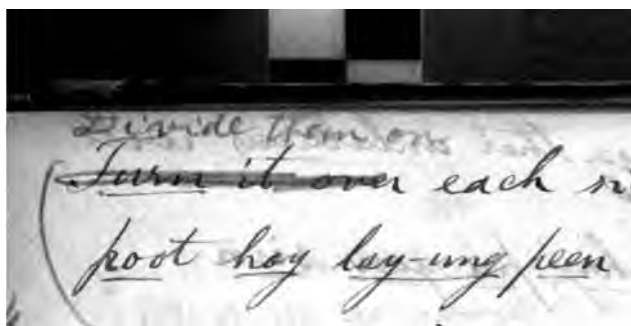 Divide them on
Turn it over each
poot hoy loy-ung peen